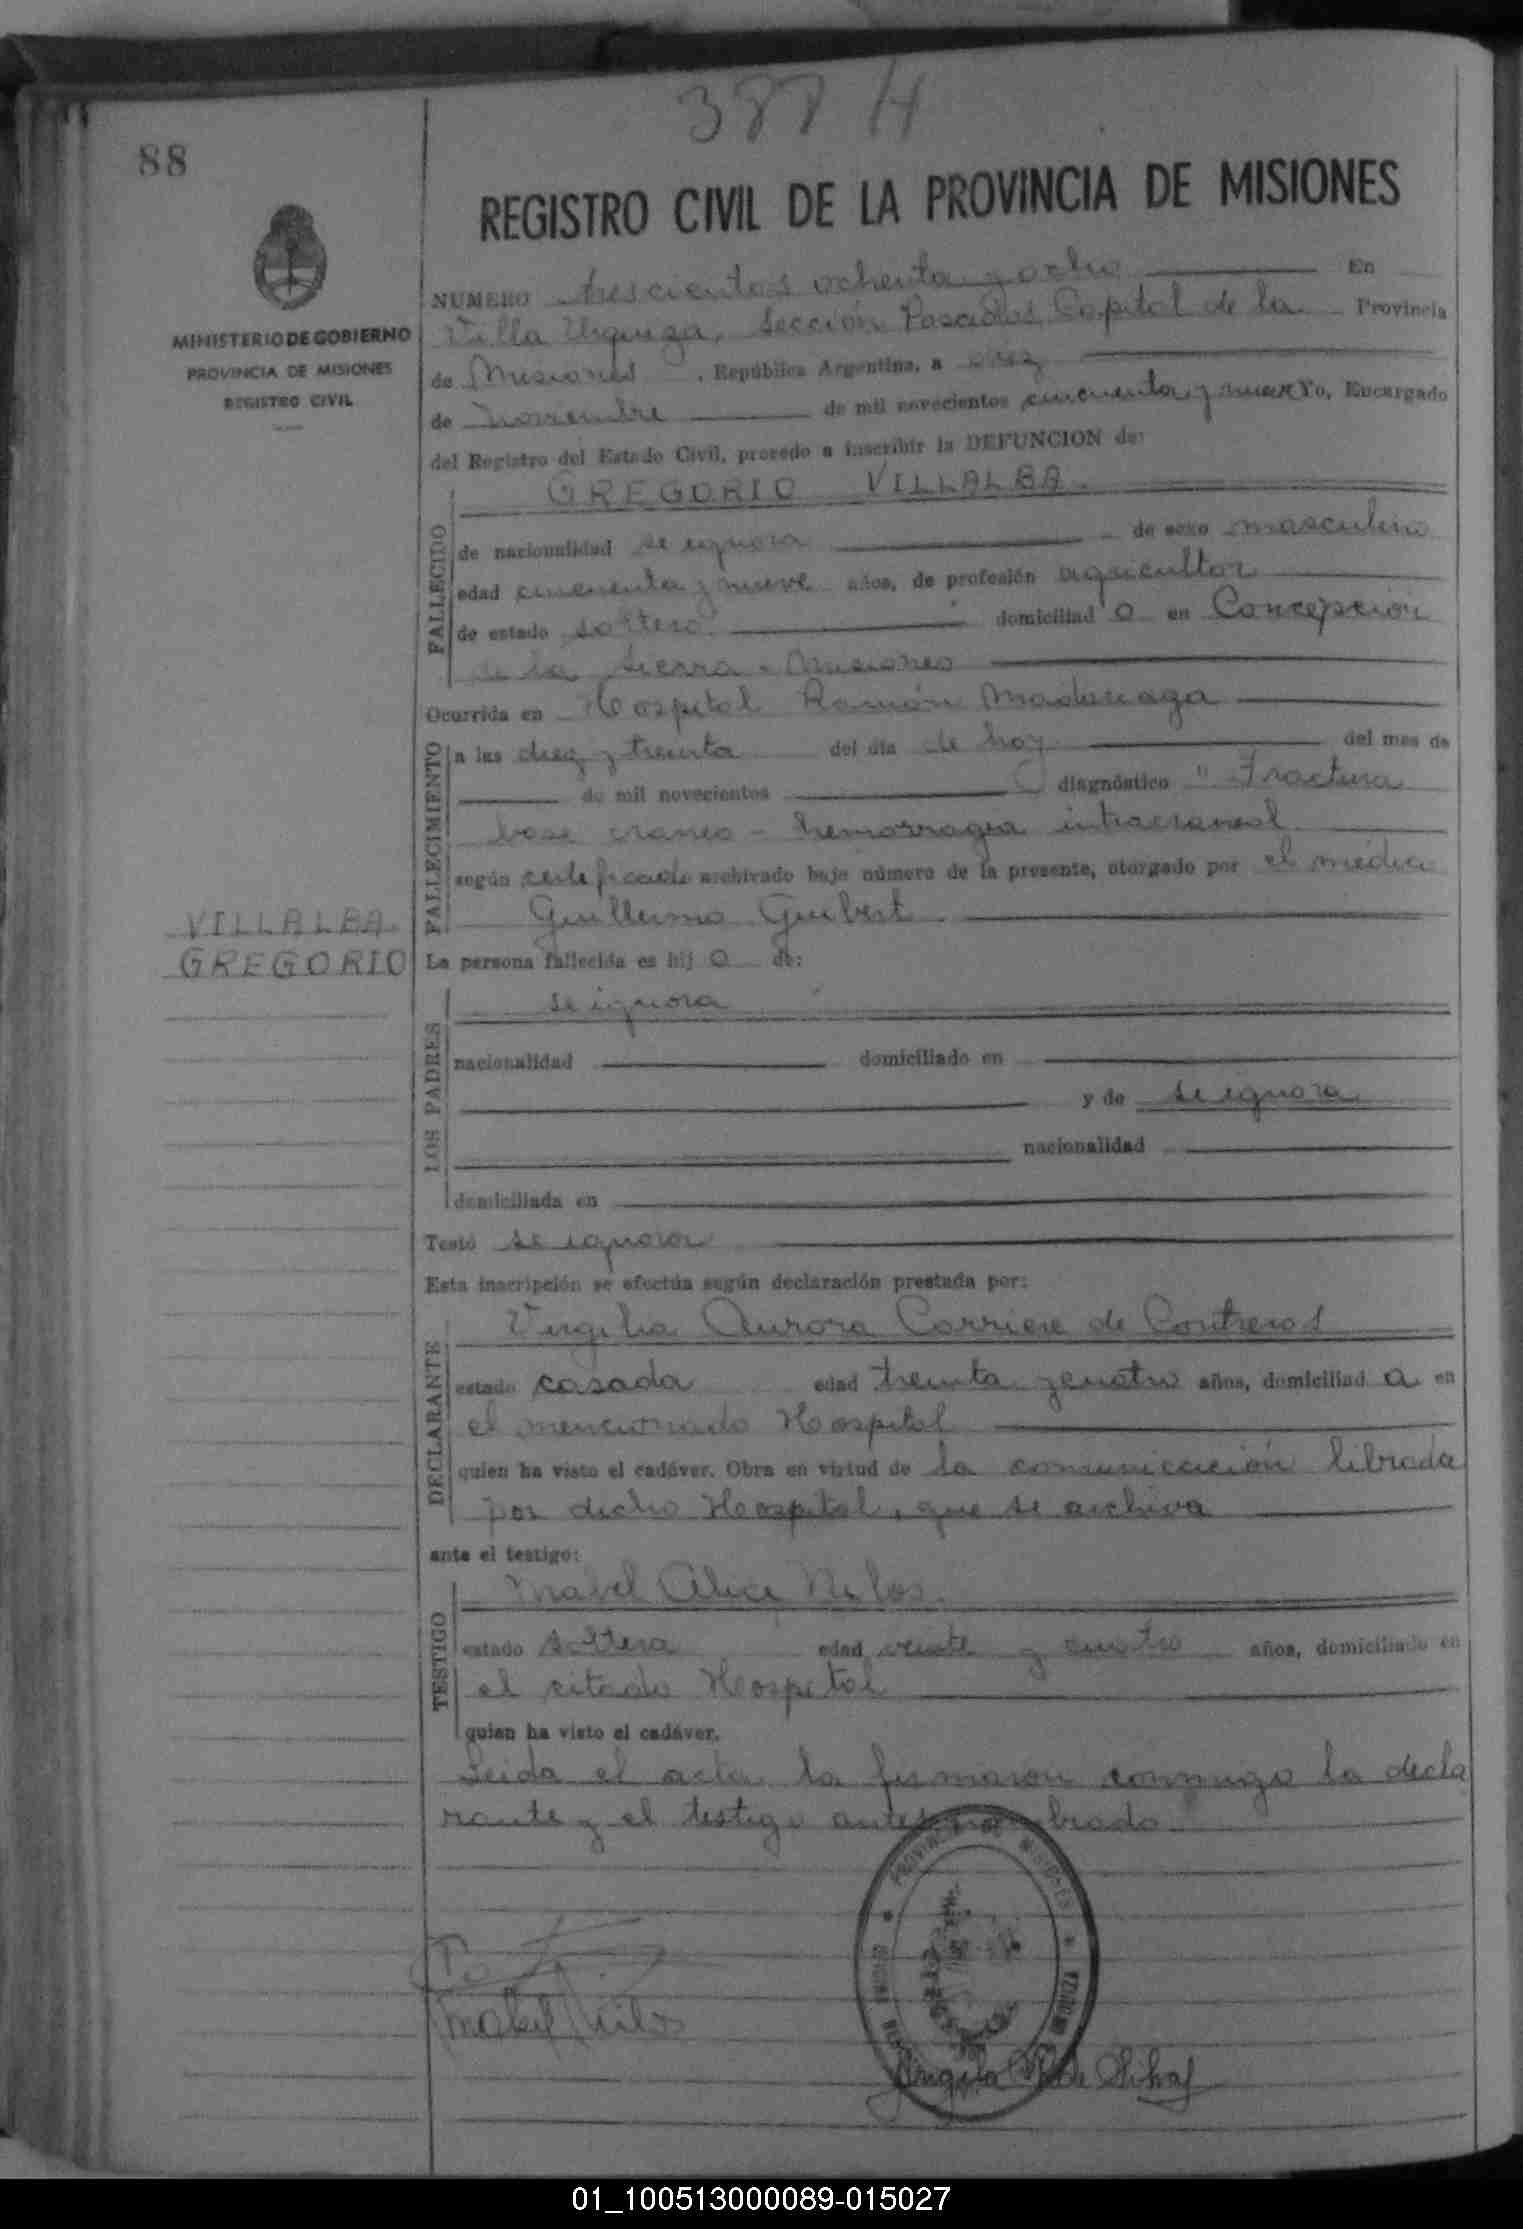 388 H
88
REGISTRO CIVIL DE LA PROVINCIA DE MISIONES
MINISTERIO DE GOBIERNO
PROVINCIA DE MISIONES
REGISTRO CIVIL
NUMERO trescientos ochenta y ocho En
Villa Urquiza, Sección Posadas Capital de la Provincia
de Misiones, República Argentina, a diez
de noviembre de mil novecientos cincuenta y nueve Yo, Encargado
del Registro del Estado Civil, procedo a inscribir la DEFUNCION de:
GREGORIO VILLALBA
FALLECIDO
de nacionalidad se ignora de sexo masculino
edad cincuenta y nueve años, de profesión agricultor
de estado soltero domiciliad o en Concepción
de la Sierra - Misiones
Ocurrida en Hospital Ramón Madariaga
FALLECIMIENTO
a las diez y treinta del día de hoy del mes de
de mil novecientos diagnóstico "Fractura
base craneo - hemorragia intracraneal
según certificado archivado bajo número de la presente, otorgado por el médico
Guillermo Guibert
VILLALBA
GREGORIO
La persona fallecida es hij o de:
LOS PADRES
se ignora
nacionalidad domiciliado en
y de se ignora
nacionalidad
domiciliada en
Testó se ignora
Esta inscripción se efectúa según declaración prestada por:
DECLARANTE
Virgilia Aurora Carriere de Contreras
estado casada edad treinta y cuatro años, domiciliad a en
el mencionado Hospital
quien ha visto el cadáver. Obra en virtud de la comunicación librada
por dicho Hospital, que se archiva
ante el testigo:
TESTIGO
Mabel Alice Nilos
estado soltera edad veinte y cuatro años, domiciliado en
el citado Hospital
quien ha visto el cadáver.
Leida el acta la firmaron conmigo la decla
rante y el testigo antes nombrado.
PROVINCIA DE MISIONES
Mabel Nilos
Angela
01_100513000089-015027